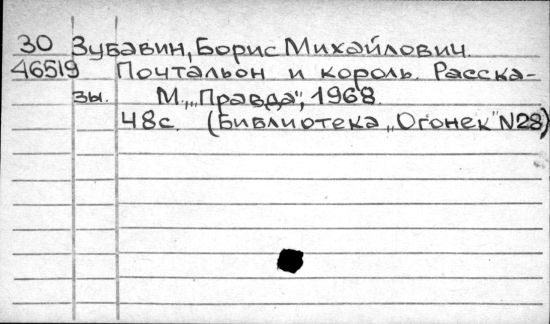 30 Зубавин, Борис Михайлович.
46519 Почтальон и король. Расска-
зы. М., „Правда", 1968.
48с. (Библиотека „Огонек" N28)